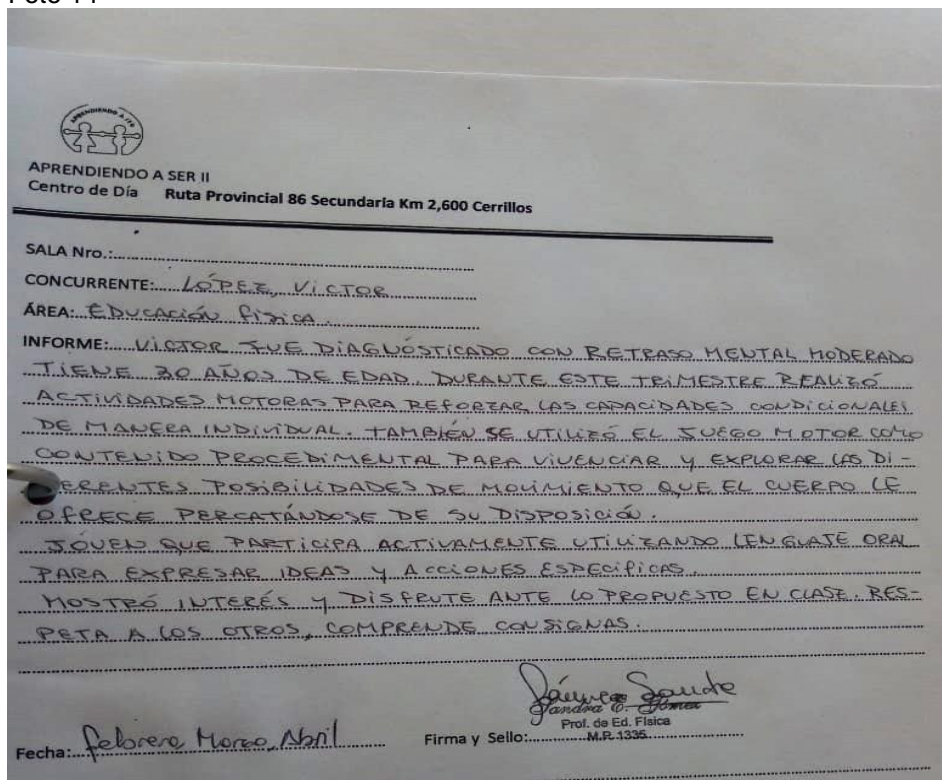 APRENDIENDO A SER
APRENDIENDO A SER II
Centro de Día Ruta Provincial 86 Secundaria Km 2,600 Cerrillos
SALA Nro.:
CONCURRENTE: LÓPEZ, VICTOR
ÁREA: EDUCACIÓN FÍSICA.
INFORME: VICTOR FUE DIAGNÓSTICADO CON RETRASO MENTAL MODERADO
TIENE 30 AÑOS DE EDAD. DURANTE ESTE TRIMESTRE REALIZÓ
ACTIVIDADES MOTORAS PARA REFORZAR LAS CAPACIDADES CONDICIONALES
DE MANERA INDIVIDUAL. TAMBIÉN SE UTILIZÓ EL JUEGO MOTOR COMO
CONTENIDO PROCEDIMENTAL PARA VIVENCIAR Y EXPLORAR LAS DI-
ERENTES POSIBILIDADES DE MOVIMIENTO QUE EL CUERPO LE
OFRECE PERCATÁNDOSE DE SU DISPOSICIÓN.
JÓVEN QUE PARTICIPA ACTIVAMENTE UTILIZANDO LENGUAJE ORAL
PARA EXPRESAR IDEAS Y ACCIONES ESPECÍFICAS.
MOSTRÓ INTERÉS Y DISFRUTE ANTE LO PROPUESTO EN CLASE. RES-
PETA A LOS OTROS, COMPRENDE CONSIGNAS.
Sandra E. Gómez
Prof. de Ed. Física
Fecha: Febrero, Marzo, Abril Firma y Sello: M.P. 1335